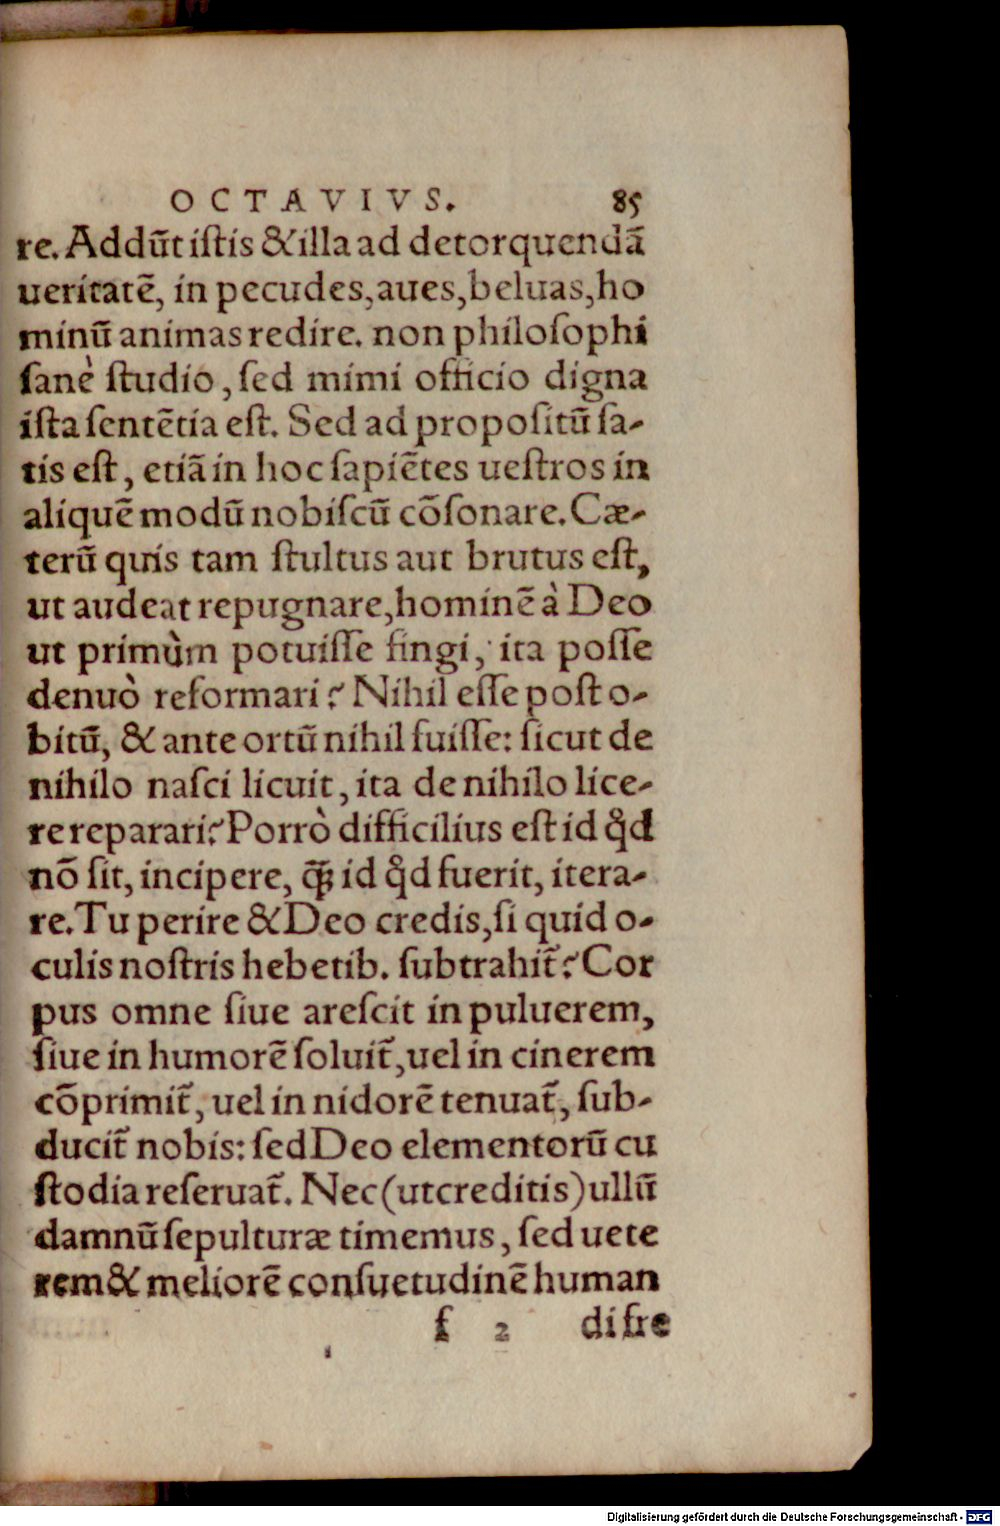 OCTAVIVS. 85
re. Addūt iſtis & illa ad detorquendā
ueritatē, in pecudes, aues, beluas, ho
minū animas redire. non philoſophi
ſanè ſtudio, ſed mimi officio digna
iſta ſentētia eſt. Sed ad propoſitū ſa-
tis eſt, etiā in hoc ſapiētes ueſtros in
aliquē modū nobiſcū cōſonare. Cæ-
terū quis tam ſtultus aut brutus eſt,
ut audeat repugnare, hominē à Deo
ut primùm potuiſſe fingi, ita poſſe
denuò reformari? Nihil eſſe poſt o-
bitū, & ante ortū nihil fuiſſe: ſicut de
nihilo naſci licuit, ita de nihilo lice-
re reparari? Porrò difficilius eſt id qđ
nō ſit, incipere, q̃ꝫ id qđ fuerit, itera-
re. Tu perire & Deo credis, ſi quid o-
culis noſtris hebetib. ſubtrahit̃? Cor
pus omne ſiue areſcit in puluerem,
ſiue in humorē ſoluit̃, uel in cinerem
cōprimit̃, uel in nidorē tenuat̃, ſub-
ducit̃ nobis: ſed Deo elementorū cu
ſtodia reſeruat̃. Nec (ut creditis) ullū
damnū ſepulturæ timemus, ſed uete
rem & meliorē conſuetudinē human
f 2 di fre
Digitalisierung gefördert durch die Deutsche Forschungsgemeinschaft - DFG